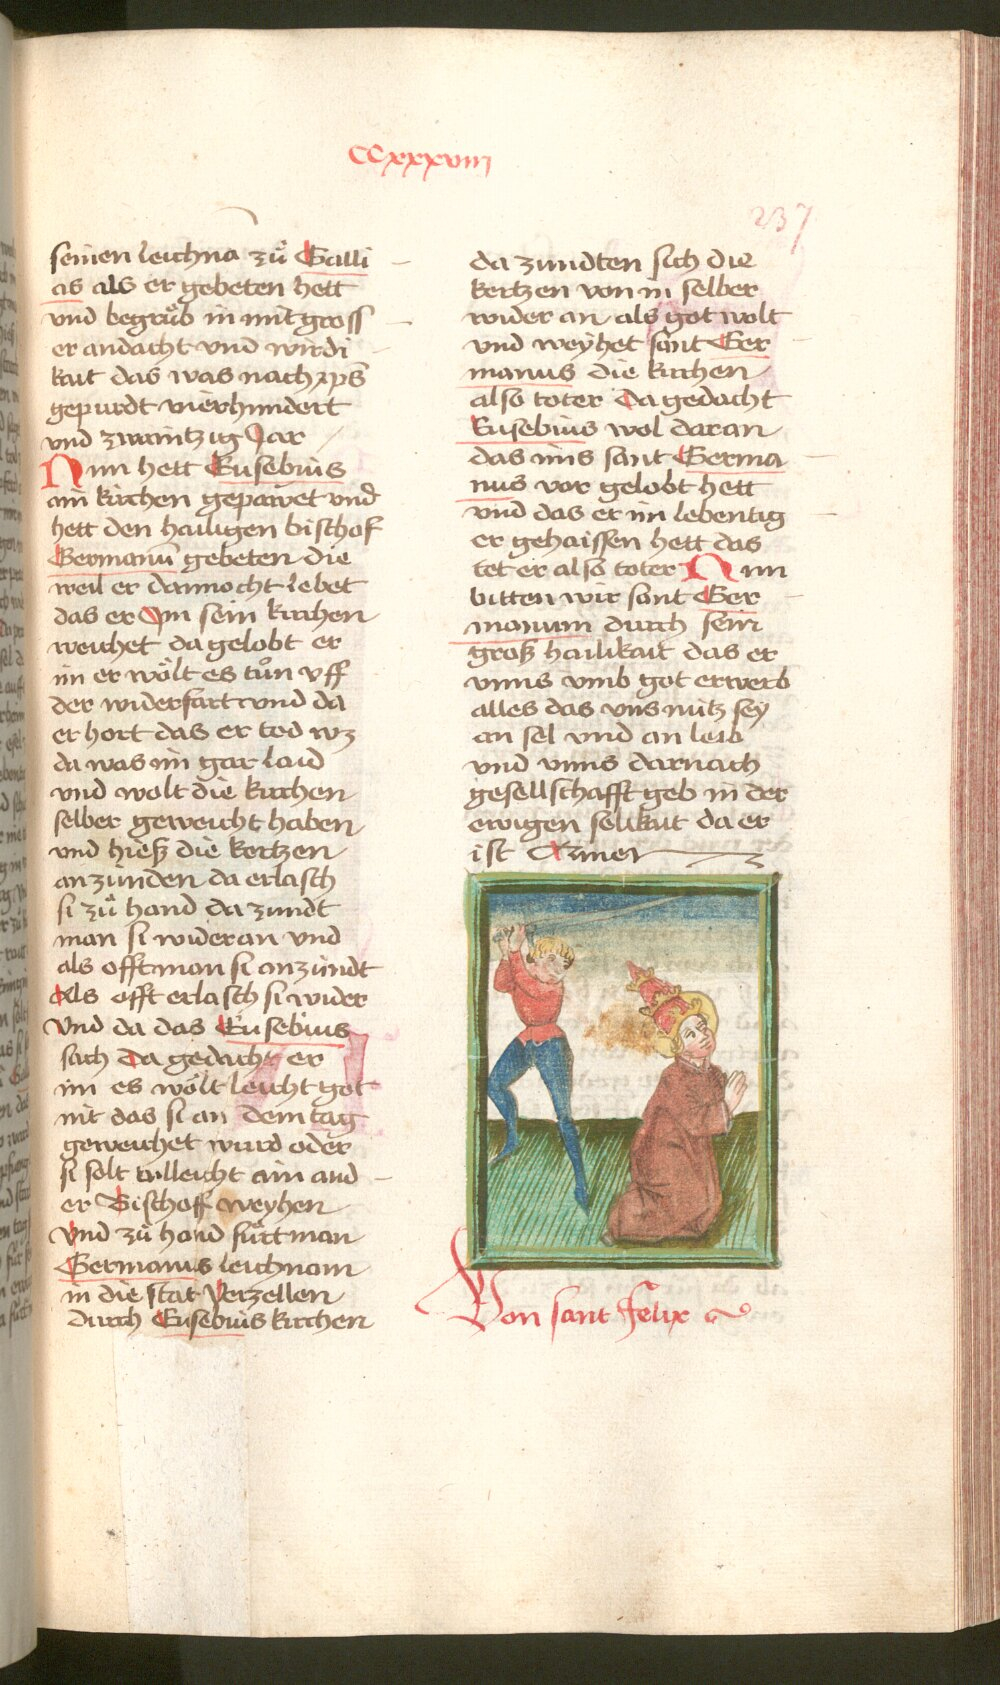 CCxxxviii
237
seinen leichna zů Galli
as als er gebeten hett
vnd begrůb in mit gross
er andacht vnd wirdi
kait das was nach xp̄s
gepurdt vierhundert
vnd zwaintzig Jar
Nun hett Eusebius
ain kirchen gepawet vnd
hett den hailigen bischof
Germanū gebeten die
weil er dannocht lebet
das er Im sein kirchen
weichet da gelobt er
im er wölt es tůn vff
der widerfart vnd da
er hort das er tod wz
da was im gar laid
vnd wolt die kirchen
selber geweicht haben
vnd hieß die kertzen
anzünden da erlasch
si zů hand da zundt
man si wider an vnd
als offt man si anzündt
Als offt erlasch si wider
Vnd da das Eusebius
sach da gedacht er
im es wölt leicht got
nit das si an dem tag
geweichet wurd oder
si solt villeicht ain and
er Bischoff weyhen
Vnd zů hand fůrt man
Germanus leichnam
in die stat Verzellen
durch Eusebius kirchen
da zundten sich die
kertzen von in selber
wider an als got wolt
vnd weyhet sant Ger
manus die kirchen
also toter Da gedacht
Eusebius wol daran
das ims sant Germa
nus vor gelobt hett
vnd das er im lebentig
er gehaissen hett das
tet er also toter Nun
bitten wir sant Ger
manum durch sein
groß hailikait das er
vnns vmb got erwerb
alles das vns nütz sey
an sel vnd an leib
vnd vnns darnach
gesellschafft geb in der
ewigen selikait da er
ist Amen
Von sant felix